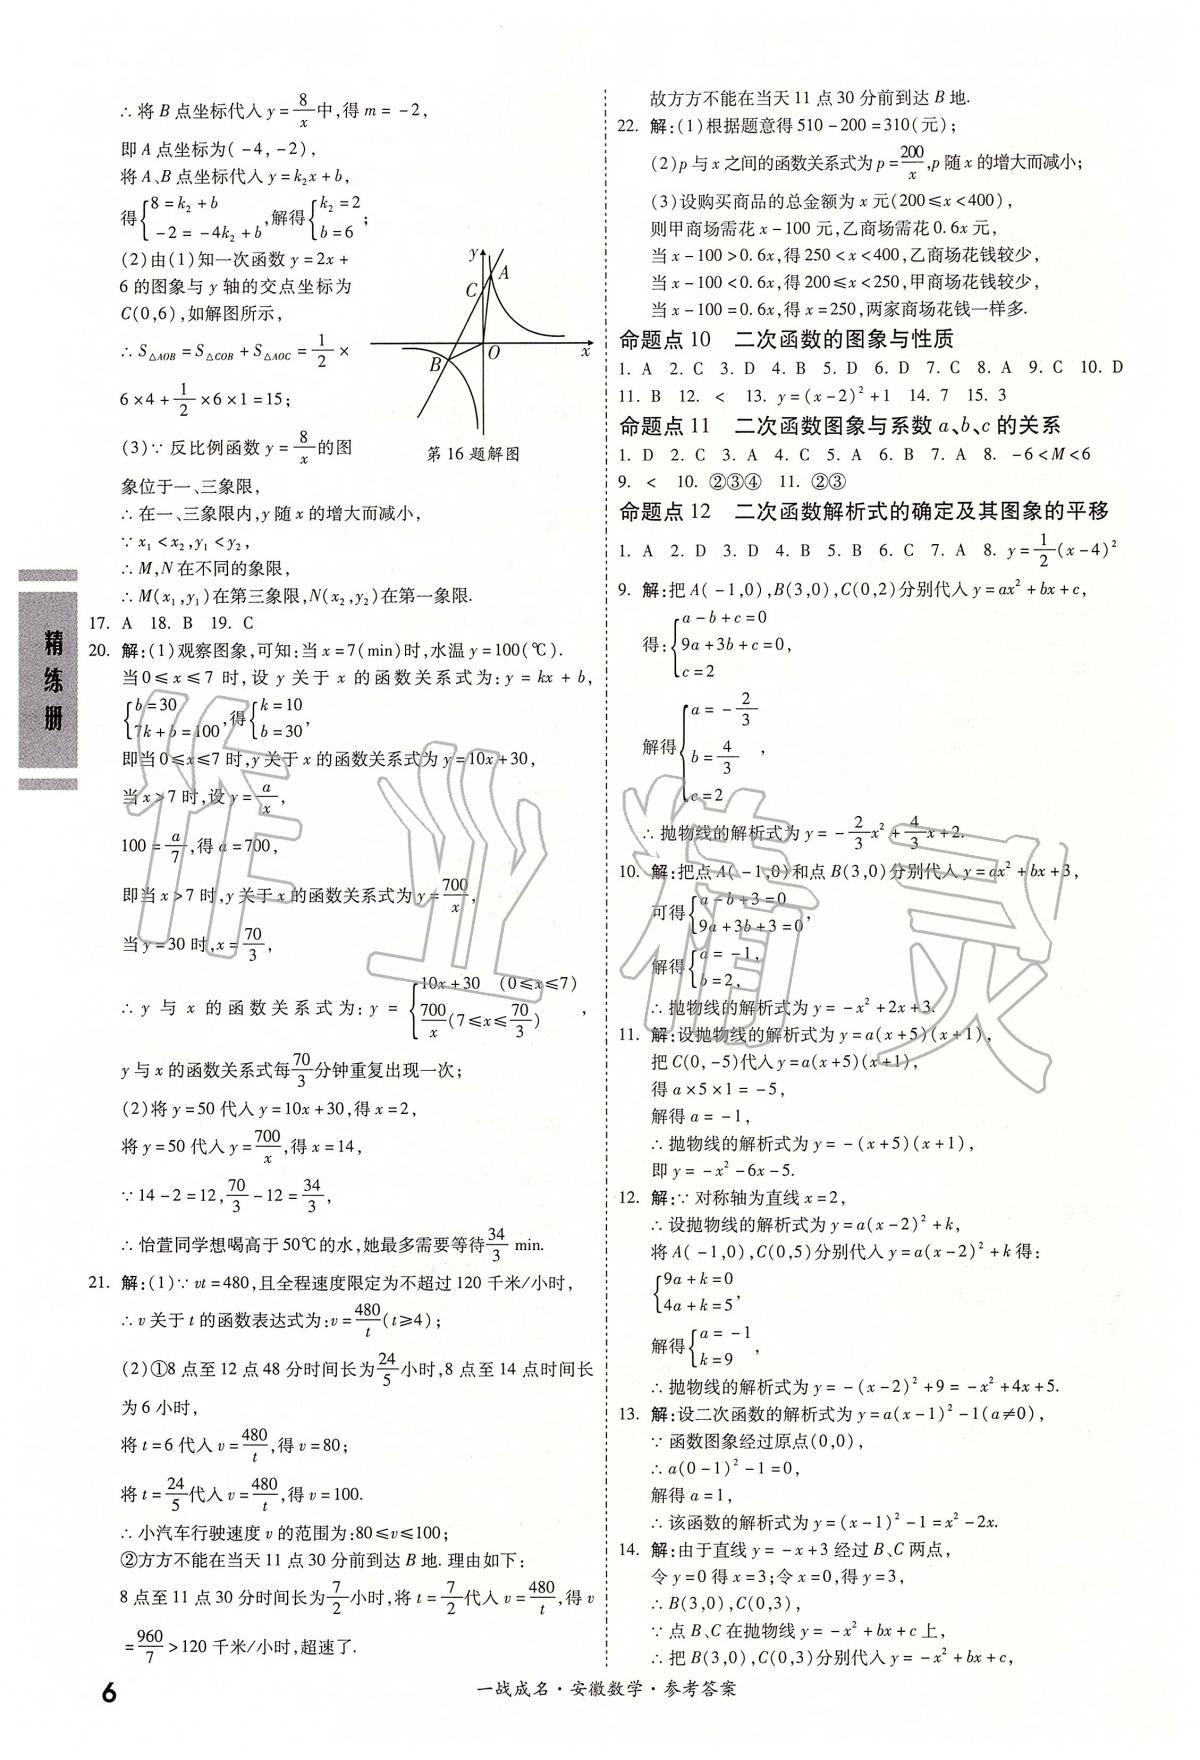 ∴将B点坐标代入y=8/x中,得m=-2,
即A点坐标为(-4,-2),
将A、B点坐标代入y=k₂x+b,
得{8=k₂+b
-2=-4k₂+b,解得{k₂=2
b=6;
(2)由(1)知一次函数y=2x+
6的图象与y轴的交点坐标为
C(0,6),如解图所示,
∴S△AOB=S△COB+S△AOC=1/2×
6×4+1/2×6×1=15;
(3)∵反比例函数y=8/x的图
y
A
C
B
O
x
第16题解图
象位于一、三象限,
∴在一、三象限内,y随x的增大而减小,
∵x₁<x₂,y₁<y₂,
∴M,N在不同的象限,
∴M(x₁,y₁)在第三象限,N(x₂,y₂)在第一象限.
17. A 18. B 19. C
20. 解:(1)观察图象,可知:当x=7(min)时,水温y=100(℃).
当0≤x≤7时,设y关于x的函数关系式为:y=kx+b,
{b=30
7k+b=100,得{k=10
b=30,
即当0≤x≤7时,y关于x的函数关系式为y=10x+30,
当x>7时,设y=a/x,
100=a/7,得a=700,
即当x>7时,y关于x的函数关系式为y=700/x,
当y=30时,x=70/3,
∴y与x的函数关系式为:y={10x+30 (0≤x≤7)
700/x(7≤x≤70/3),
y与x的函数关系式每70/3分钟重复出现一次;
(2)将y=50代入y=10x+30,得x=2,
将y=50代入y=700/x,得x=14,
∵14-2=12,70/3-12=34/3,
∴怡萱同学想喝高于50℃的水,她最多需要等待34/3 min.
21. 解:(1)∵vt=480,且全程速度限定为不超过120千米/小时,
∴v关于t的函数表达式为:v=480/t(t≥4);
(2)①8点至12点48分时间长为24/5小时,8点至14点时间长
为6小时,
将t=6代入v=480/t,得v=80;
将t=24/5代入v=480/t,得v=100.
∴小汽车行驶速度v的范围为:80≤v≤100;
②方方不能在当天11点30分前到达B地.理由如下:
8点至11点30分时间长为7/2小时,将t=7/2代入v=480/t,得v
=960/7>120千米/小时,超速了.
故方方不能在当天11点30分前到达B地.
22. 解:(1)根据题意得510-200=310(元);
(2)p与x之间的函数关系式为p=200/x,p随x的增大而减小;
(3)设购买商品的总金额为x元(200≤x<400),
则甲商场需花x-100元,乙商场需花0.6x元,
当x-100>0.6x,得250<x<400,乙商场花钱较少,
当x-100<0.6x,得200≤x<250,甲商场花钱较少,
当x-100=0.6x,得x=250,两家商场花钱一样多.
命题点10 二次函数的图象与性质
1. A 2. C 3. D 4. B 5. D 6. D 7. C 8. A 9. C 10. D
11. B 12. < 13. y=(x-2)²+1 14. 7 15. 3
命题点11 二次函数图象与系数a、b、c的关系
1. D 2. C 3. A 4. C 5. A 6. B 7. A 8. -6<M<6
9. < 10. ②③④ 11. ②③
命题点12 二次函数解析式的确定及其图象的平移
1. A 2. D 3. D 4. B 5. B 6. C 7. A 8. y=1/2(x-4)²
9. 解:把A(-1,0),B(3,0),C(0,2)分别代入y=ax²+bx+c,
得:{a-b+c=0
9a+3b+c=0,
c=2
解得{a=-2/3
b=4/3,
c=2
∴抛物线的解析式为y=-2/3x²+4/3x+2.
10. 解:把点A(-1,0)和点B(3,0)分别代入y=ax²+bx+3,
可得{a-b+3=0
9a+3b+3=0,
解得{a=-1,
b=2,
∴抛物线的解析式为y=-x²+2x+3.
11. 解:设抛物线的解析式为y=a(x+5)(x+1),
把C(0,-5)代入y=a(x+5)(x+1),
得a×5×1=-5,
解得a=-1,
∴抛物线的解析式为y=-(x+5)(x+1),
即y=-x²-6x-5.
12. 解:∵对称轴为直线x=2,
∴设抛物线的解析式为y=a(x-2)²+k,
将A(-1,0),C(0,5)分别代入y=a(x-2)²+k得:
{9a+k=0
4a+k=5,
解得{a=-1
k=9,
∴抛物线的解析式为y=-(x-2)²+9=-x²+4x+5.
13. 解:设二次函数的解析式为y=a(x-1)²-1(a≠0),
∵函数图象经过原点(0,0),
∴a(0-1)²-1=0,
解得a=1,
∴该函数的解析式为y=(x-1)²-1=x²-2x.
14. 解:由于直线y=-x+3经过B、C两点,
令y=0得x=3;令x=0,得y=3,
∴B(3,0),C(0,3),
∵点B、C在抛物线y=-x²+bx+c上,
∴把B(3,0),C(0,3)分别代入y=-x²+bx+c,
精练册
作业精灵
6
一战成名·安徽数学·参考答案